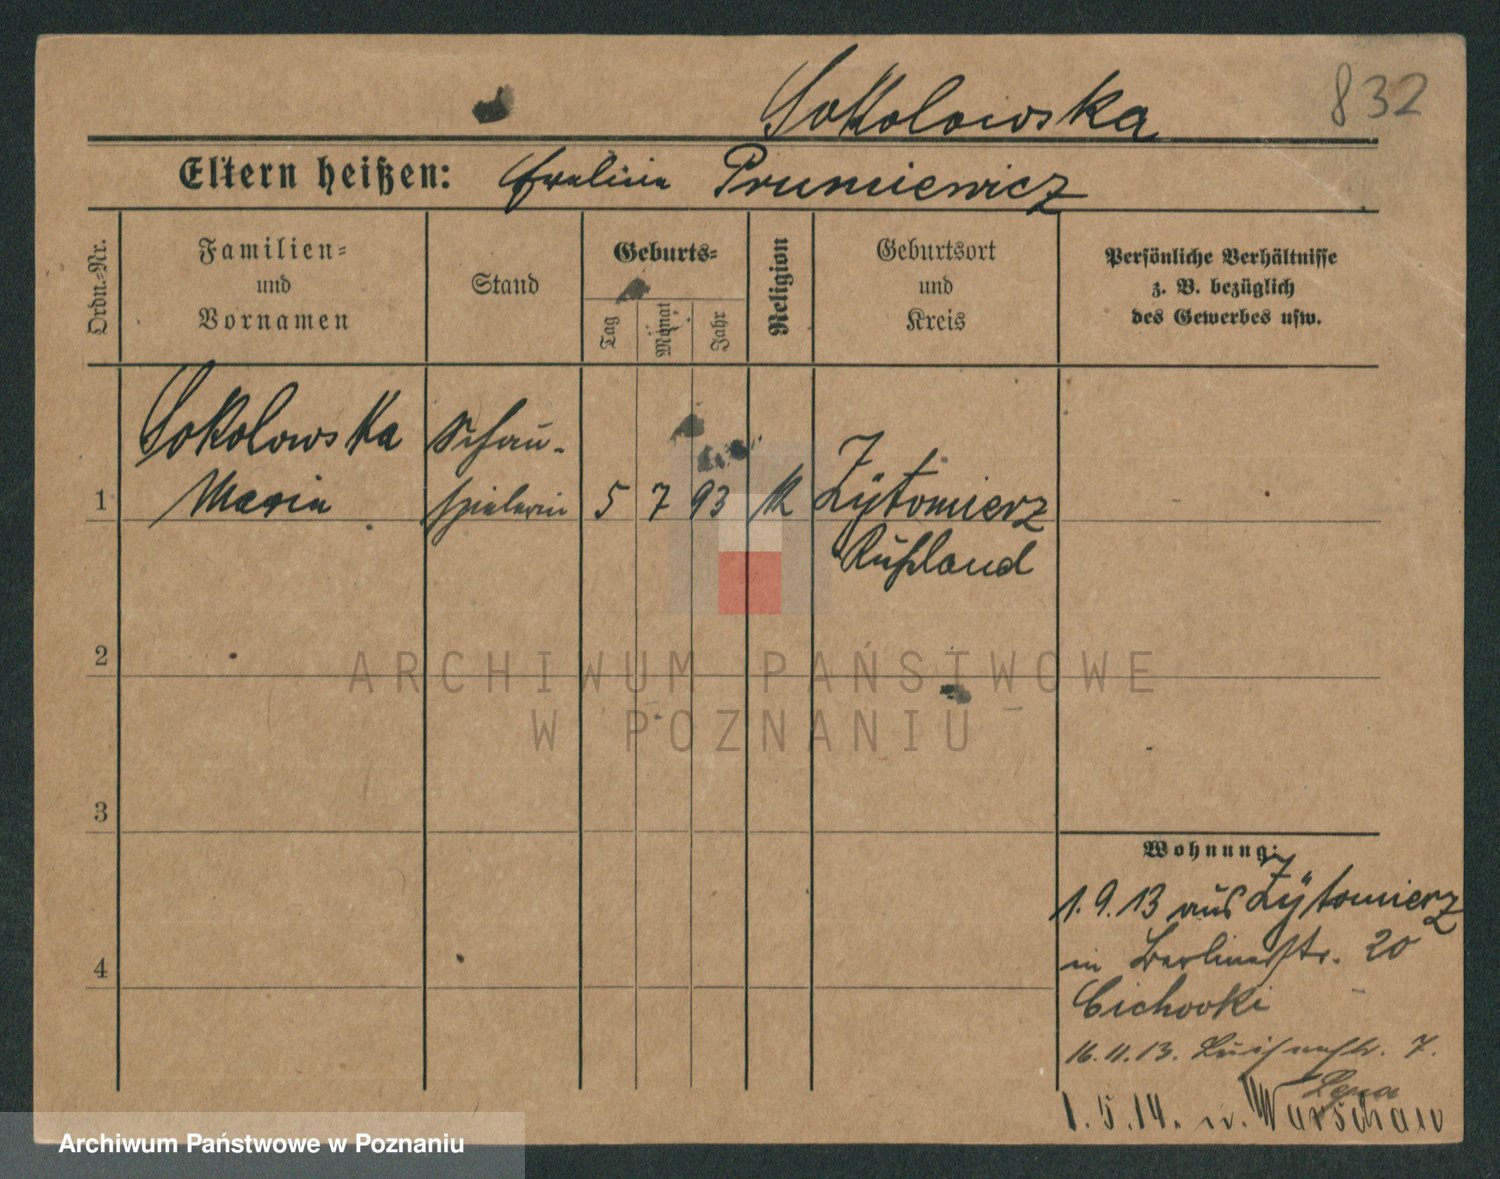 832
Sokolowska
Eltern heißen: Ewelina Prumiewicz
Ordn.-Nr.
Familien- und Vornamen
Stand
Geburts-
Tag
Monat
Jahr
Religion
Geburtsort und Kreis
Persönliche Verhältnisse
z. B. bezüglich
des Gewerbes usw.
Sokolowska Schau-
1 Maria spielerin 5 7 93 k Zytomierz
Rußland
2
3
4
Wohnung:
1.9.13 aus Zytomierz
in Berlinerstr. 20
Cichocki
16.11.13. Luisenstr. 7.
1.5.14. n. Warschau
ARCHIWUM PAŃSTWOWE
W POZNANIU
Archiwum Państwowe w Poznaniu